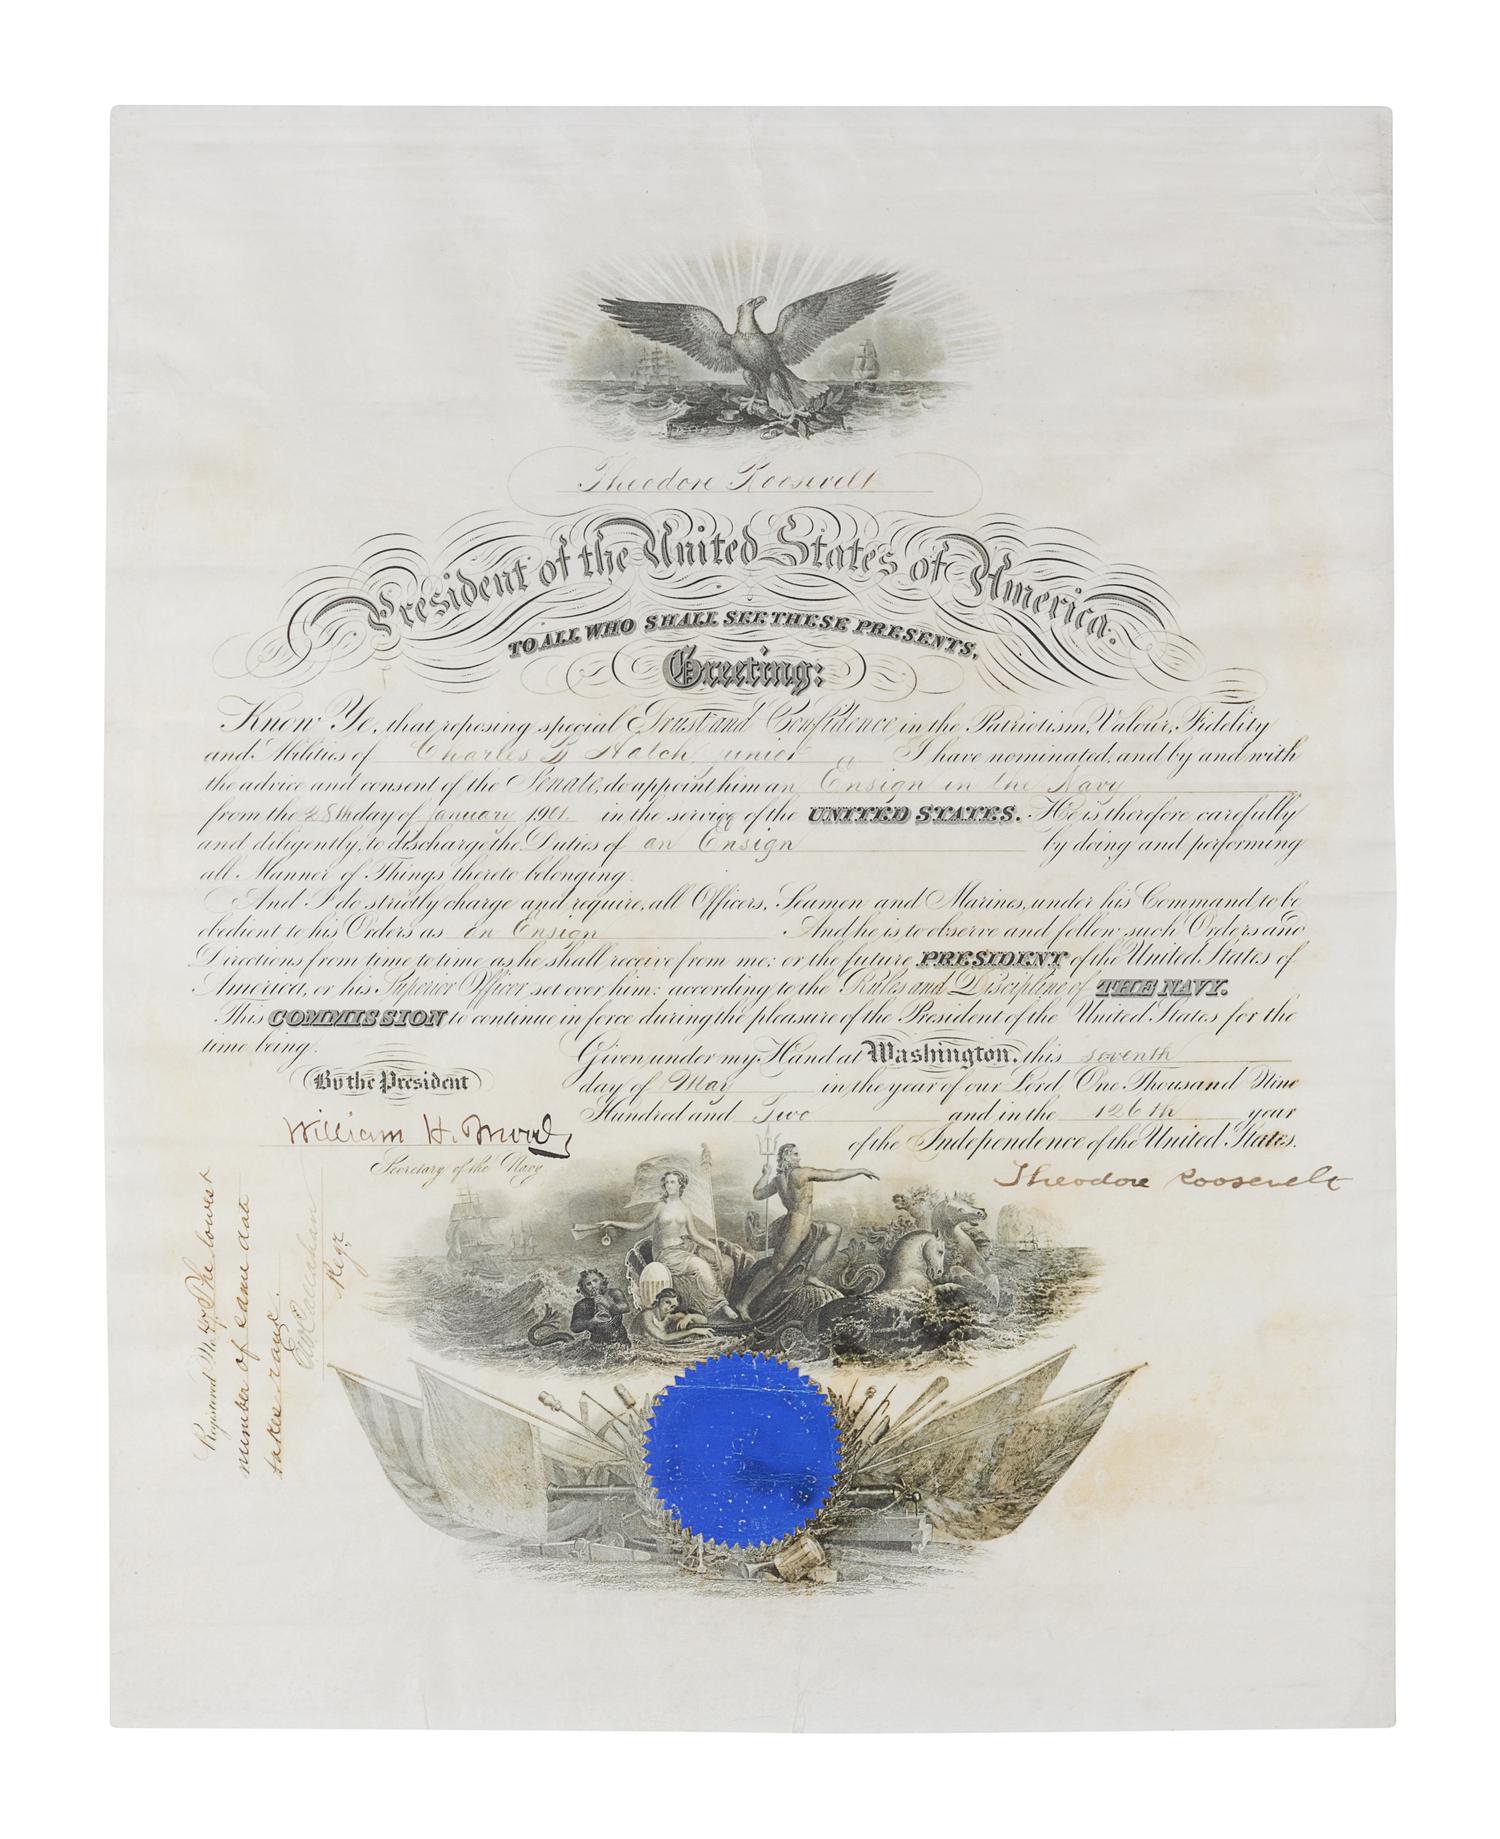 Theodore Roosevelt
President of the United States of America.
TO ALL WHO SHALL SEE THESE PRESENTS,
Greeting:
Know Ye, that reposing special Trust and Confidence in the Patriotism, Valour, Fidelity
and Abilities of Charles B Hatch junior I have nominated, and by and with
the advice and consent of the Senate, do appoint him an Ensign in the Navy
from the 28th day of January 1901. in the service of the UNITED STATES. He is therefore carefully
and diligently, to discharge the Duties of an Ensign by doing and performing
all Manner of Things thereto belonging.
And I do strictly charge and require, all Officers, Seamen and Marines, under his Command to be
obedient to his Orders as an Ensign And he is to observe and follow such Orders and
Directions from time to time as he shall receive from me: or the future PRESIDENT of the United States of
America, or his Superior Officer set over him: according to the Rules and Discipline of THE NAVY.
This COMMISSION to continue in force during the pleasure of the President of the United States for the
time being.
Given under my Hand at Washington, this seventh
By the President
day of May in the year of our Lord, One Thousand Nine
Hundred and Two and in the 126th year
William H. Moody
of the Independence of the United States.
Secretary of the Navy
Theodore Roosevelt
Registered No The lowest
number of same date
takes rank.
Callahan
Regr